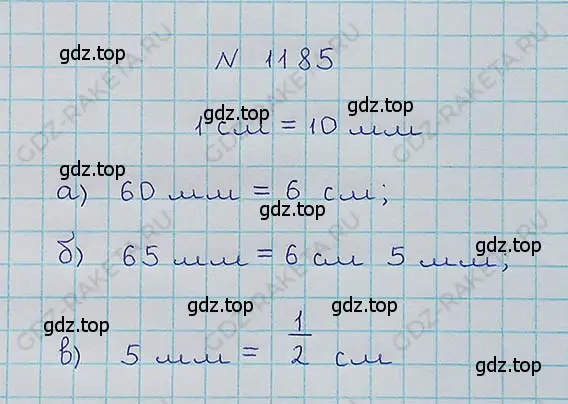 gdz.top
N 1185
gdz.top
1 см = 10 мм
gdz.top
а) 60 мм = 6 см;
gdz.top
б) 65 мм = 6 см 5 мм;
gdz.top
gdz.top gdz.top
в) 5 мм = 1/2 см
gdz.top
GDZ-RAKETA.RU
GDZ-RAKETA.RU
GDZ-RAKETA.RU
GDZ-RAKETA.RU
GDZ-RAKETA.RU
GDZ-RAKETA.RU